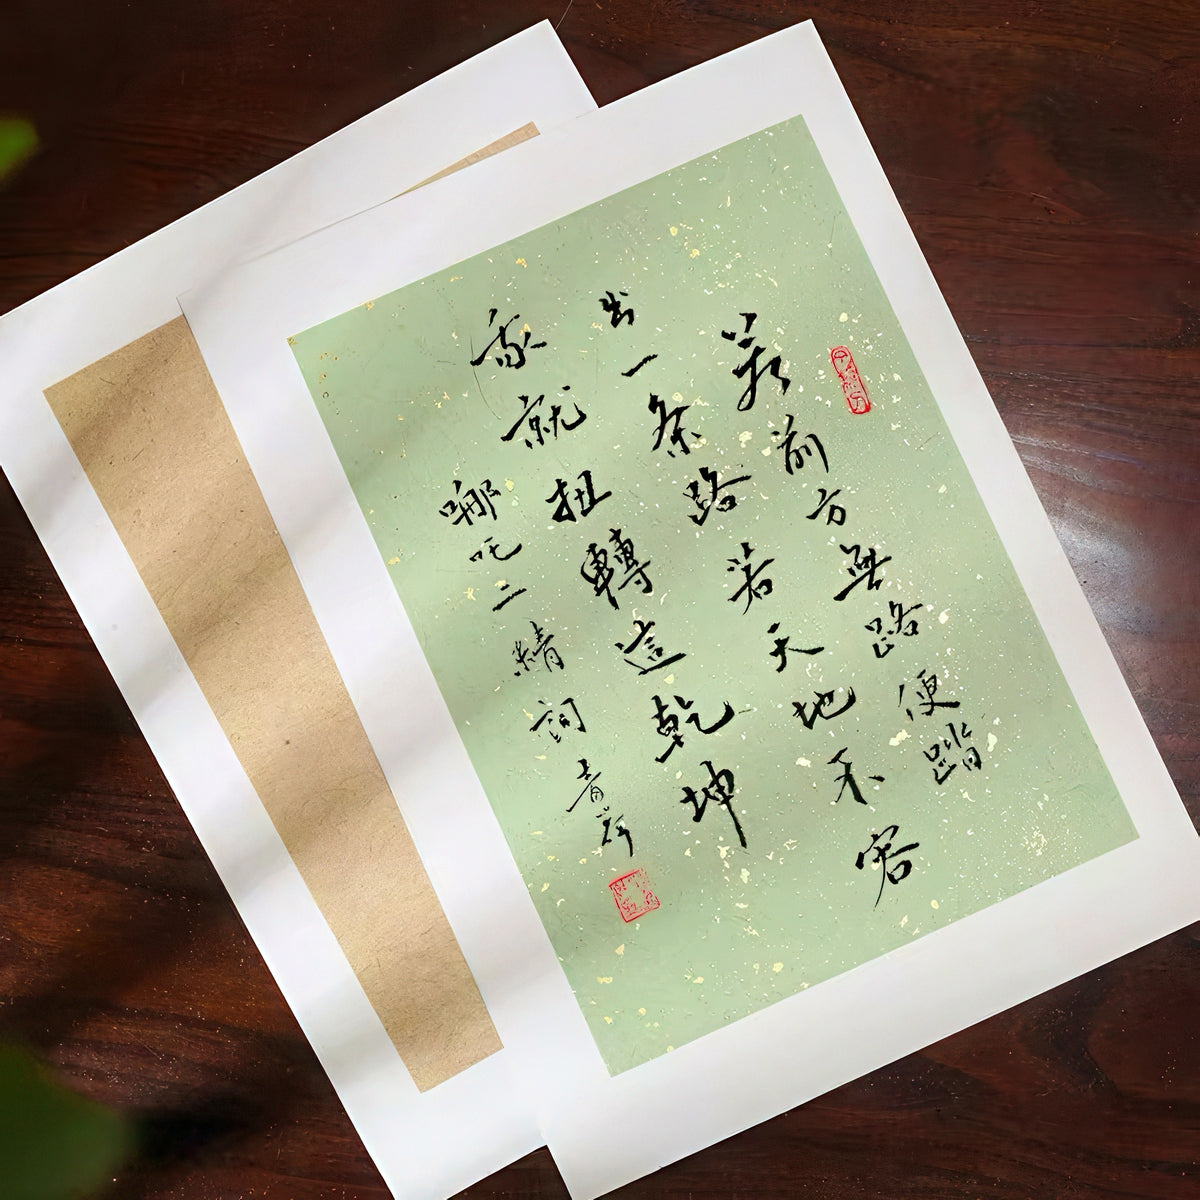 若前方無路便踏
出一条路若天地不容
我就扭轉這乾坤
哪吒二精詞青岸